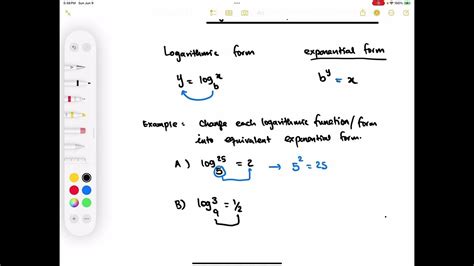 5:48 PM Sun Jun 9
Logarithmic form exponential form
y = log_b^x b^y = x
Example: Change each logarithmic function/form
into equivalent exponential form.
A) log_5^25 = 2 → 5^2 = 25
B) log_9^3 = 1/2